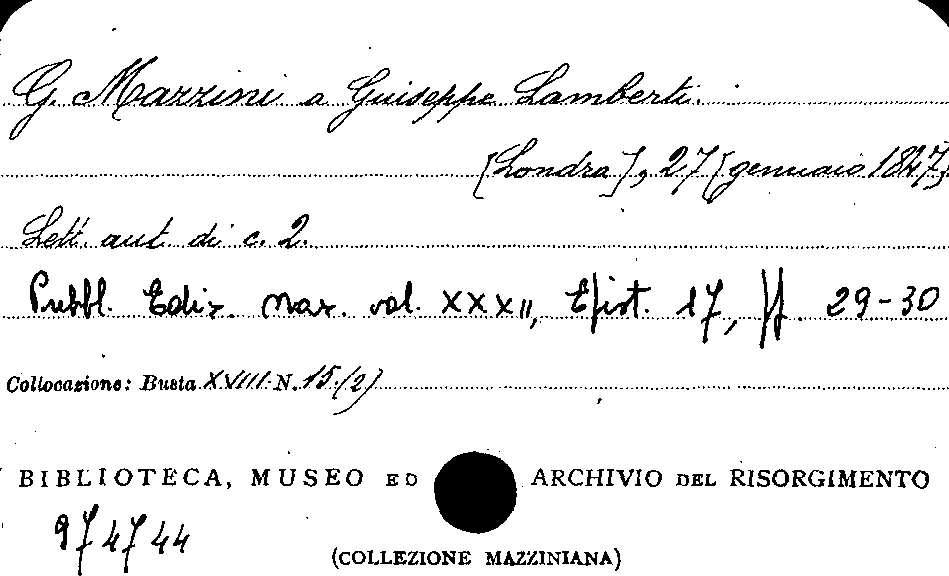 G. Mazzini a Guiseppe Lamberti.
[Londra], 27 [gennaio 1847]
Lett. aut. di c. 2.
Pubbl. Ediz. naz. vol. XXXII, Epist. 17, pp. 29-30
Collocazione: Busta XVIII N. 15 (2)
BIBLIOTECA, MUSEO ED ARCHIVIO DEL RISORGIMENTO
974744
(COLLEZIONE MAZZINIANA)